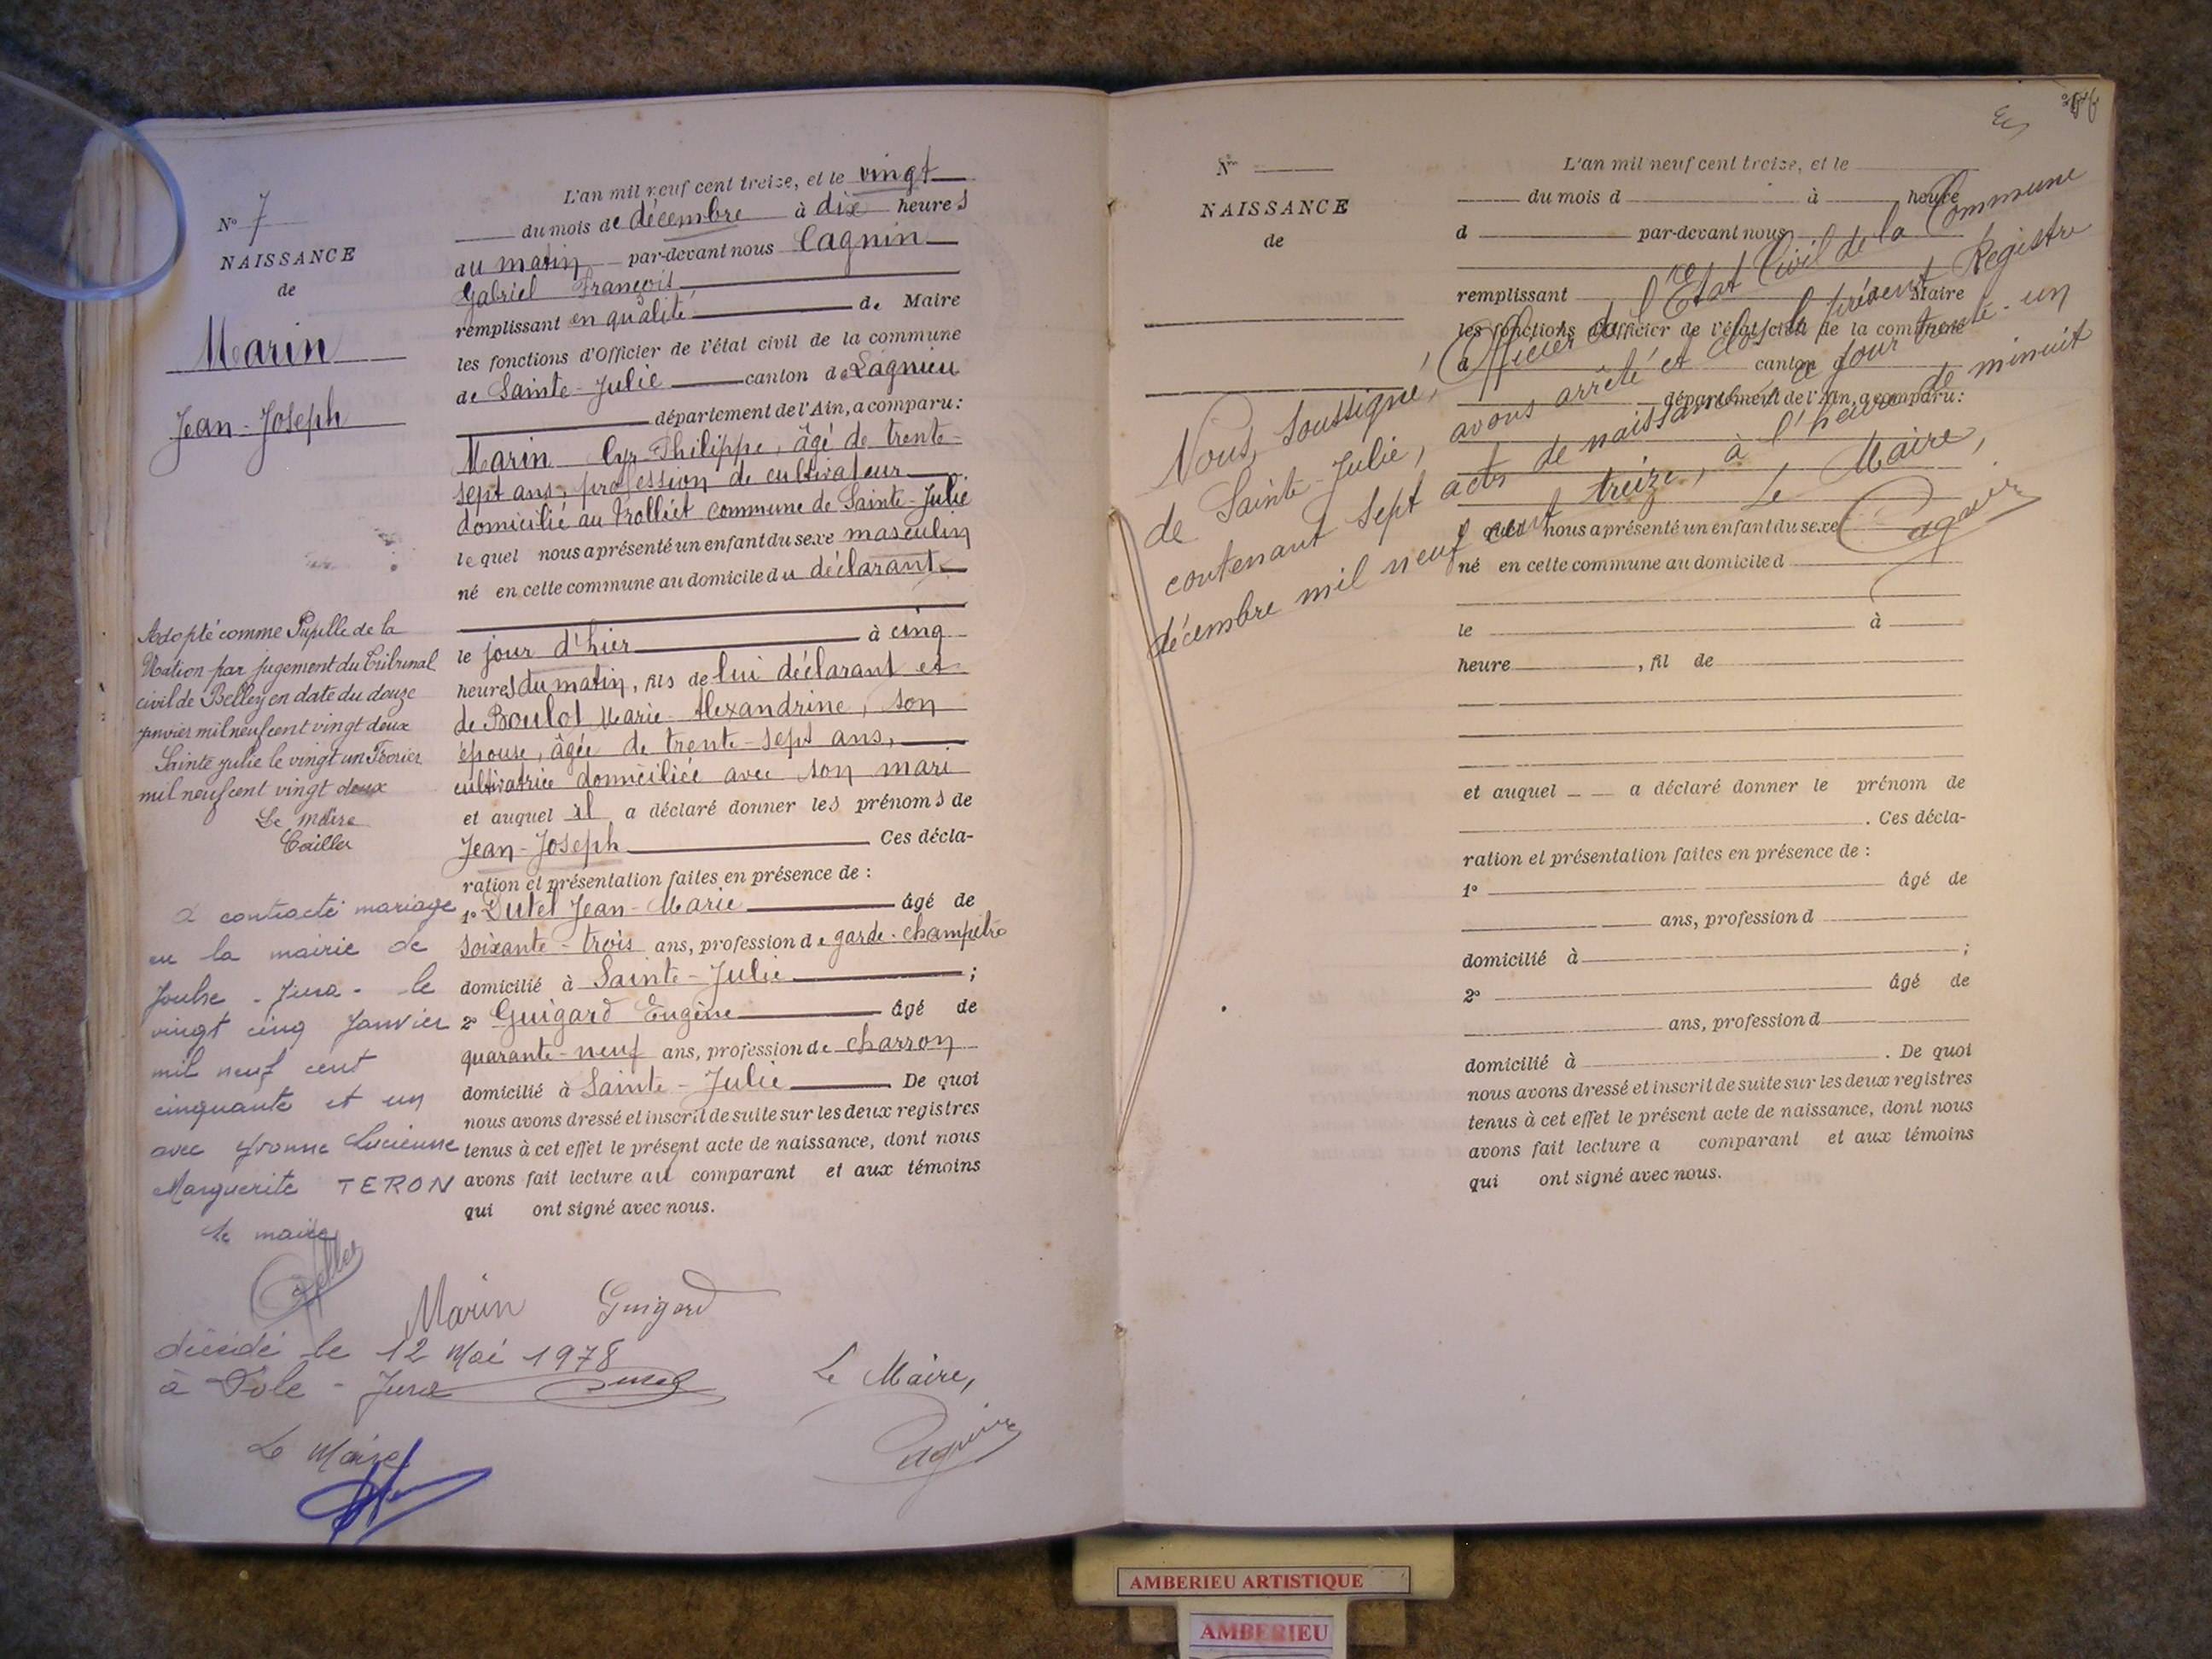 N° 7
NAISSANCE
de
Marin
Jean-Joseph
Adopté comme Pupille de la
Nation par jugement du Tribunal
civil de Belley en date du douze
janvier mil neuf cent vingt deux
Sainte Julie le vingt un Février
mil neuf cent vingt deux
Le maire
a contracté mariage
en la mairie de
Jouhe - Jura - le
vingt cinq Janvier
mil neuf cent
cinquante et un
avec Yvonne Lucienne
Marguerite TERON
le maire
décédé le 12 Mai 1978
à Dole - Jura
Le Maire
L'an mil neuf cent treize, et le vingt
du mois de décembre à dix heures
du matin par-devant nous Cagnin
Gabriel François
remplissant en qualité de Maire
les fonctions d'Officier de l'état civil de la commune
de Sainte-Julie canton de Lagnieu
département de l'Ain, a comparu :
Marin Cyr-Philippe, âgé de trente-
sept ans, profession de cultivateur
domicilié au Trolliet commune de Sainte-Julie
lequel nous a présenté un enfant du sexe masculin
né en cette commune au domicile du déclarant
le jour d'hier à cinq
heures du matin, fils de lui déclarant et
de Boulot Marie-Alexandrine, son
épouse, âgée de trente-sept ans,
cultivatrice domiciliée avec son mari
et auquel il a déclaré donner les prénoms de
Jean-Joseph Ces décla-
ration et présentation faites en présence de :
1° Dutel Jean-Marie âgé de
soixante-trois ans, profession de garde-champêtre
domicilié à Sainte-Julie ;
2° Guigard Eugène âgé de
quarante-neuf ans, profession de charron
domicilié à Sainte-Julie De quoi
nous avons dressé et inscrit de suite sur les deux registres
tenus à cet effet le présent acte de naissance, dont nous
avons fait lecture au comparant et aux témoins
qui ont signé avec nous.
Marin Guigard
Dutel
Le Maire,
Cagnin
N°
NAISSANCE
de
L'an mil neuf cent treize, et le
du mois d à heure
d par-devant nous
remplissant Maire
les fonctions d'Officier de l'état civil de la commune
d canton d
département de l'Ain, a comparu :
quel nous a présenté un enfant du sexe
né en cette commune au domicile d
le à
heure , fil de
et auquel a déclaré donner le prénom de
. Ces décla-
ration et présentation faites en présence de :
1° âgé de
ans, profession d
domicilié à ;
2° âgé de
ans, profession d
domicilié à . De quoi
nous avons dressé et inscrit de suite sur les deux registres
tenus à cet effet le présent acte de naissance, dont nous
avons fait lecture a comparant et aux témoins
qui ont signé avec nous.
Nous soussigné, Officier de l'Etat Civil de la Commune
de Sainte-Julie, avons arrêté et clos le présent Registre
contenant sept actes de naissance ce jour trente-un
décembre mil neuf cent treize, à l'heure de minuit
Le Maire,
Cagnin
AMBERIEU ARTISTIQUE
AMBERIEU